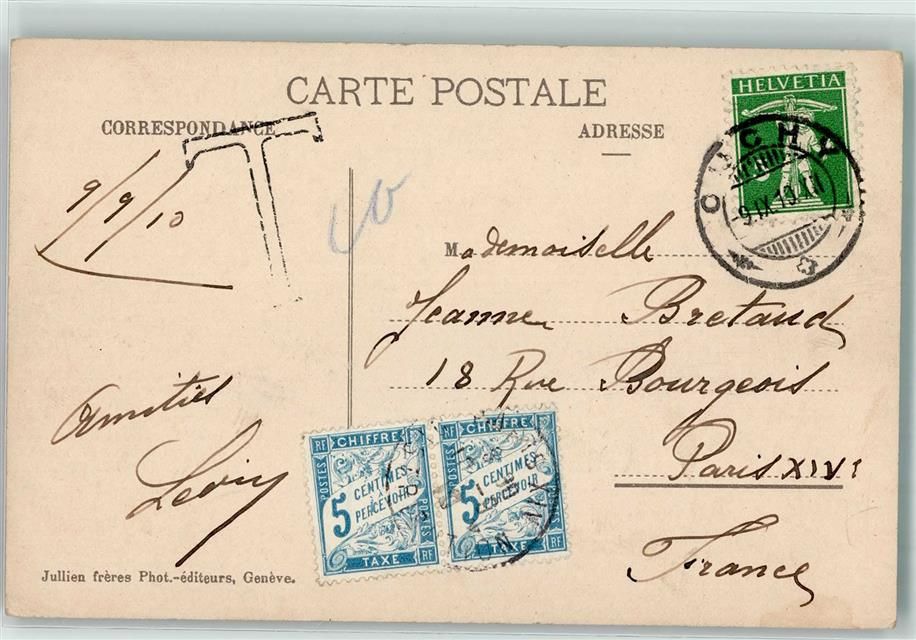 CARTE POSTALE
CORRESPONDANCE
ADRESSE
HELVETIA
OUCHY
-9.IX.10.
T
9/9/10
Mademoiselle
Jeanne Bretaud
18 Rue Bourgeois
Paris XIVe
France
Amitiés
RF CHIFFRE
POSTES
5 CENTIMES
À PERCEVOIR
TAXE RF
RF CHIFFRE
POSTES
5 CENTIMES
À PERCEVOIR
TAXE RF
Jullien frères Phot.-éditeurs, Genève.